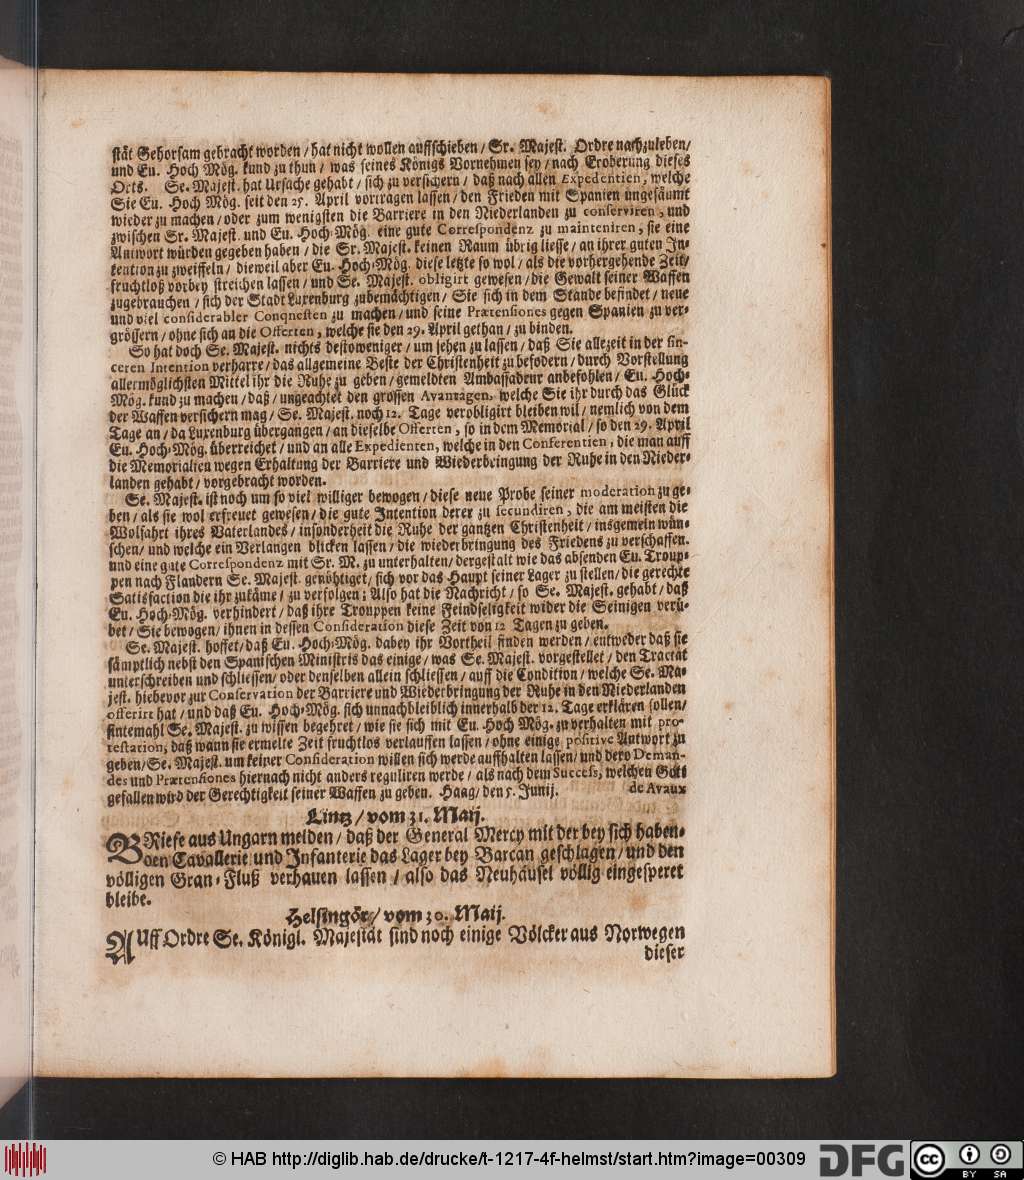 stät Gehorsam gebracht worden / hat nicht wollen auffschieben / Sr. Majest. Ordre nachzuleben /
und Eu. Hoch Mög. kund zu thun / was seines Königs Vornehmen sey / nach Eroberung dieses
Orts. Se. Majest. hat Ursache gehabt / sich zu versichern / daß nach allen Expedentien, welche
Sie Eu. Hoch Mög. seit den 25. April vortragen lassen / den Frieden mit Spanien ungesäumt
wieder zu machen / oder zum wenigsten die Barriere in den Niederlanden zu conserviren, und
zwischen Sr. Majest. und Eu. Hoch-Mög. eine gute Correspondenz zu mainteniren, sie eine
Antwort würden gegeben haben / die Sr. Majest. keinen Raum übrig liesse / an ihrer guten In-
tention zu zweiffeln / dieweil aber Eu. Hoch-Mög. diese letzte so wol / als die vorhergehende Zeit /
fruchtloß vorbey streichen lassen / und Se. Majest. obligirt gewesen / die Gewalt seiner Waffen
zugebrauchen / sich der Stadt Luxenburg zubemächtigen / Sie sich in dem Stande befindet / neue
und viel considerabler Conqnesten zu machen / und seine Prætensiones gegen Spanien zu ver-
grössern / ohne sich an die Offerten, welche sie den 29. April gethan / zu binden.
So hat doch Se. Majest. nichts destoweniger / um sehen zu lassen / daß Sie allezeit in der sin-
ceren Intention verharre / das allgemeine Beste der Christenheit zu befodern / durch Vorstellung
allermöglichsten Mittel ihr die Ruhe zu geben / gemeldten Ambassadeur anbefohlen / Eu. Hoch-
Mög. kund zu machen / daß / ungeachtet den grossen Avantagen, welche Sie ihr durch das Glück
der Waffen versichern mag / Se. Majest. noch 12. Tage verobligirt bleiben wil / nemlich von dem
Tage an / da Luxenburg übergangen / an dieselbe Offerten, so in dem Memorial / so den 29. April
Eu. Hoch-Mög. überreichet / und an alle Expedienten, welche in den Conferentien, die man auff
die Memorialien wegen Erhaltung der Barriere und Wiederbringung der Ruhe in den Nieder-
landen gehabt / vorgebracht worden.
Se. Majest. ist noch um so viel williger bewogen / diese neue Probe seiner moderation zu ge-
ben / als sie wol erfreuet gewesen / die gute Intention derer zu secundiren, die am meisten die
Wolfahrt ihres Vaterlandes / insonderheit die Ruhe der gantzen Christenheit / insgemein wün-
schen / und welche ein Verlangen blicken lassen / die wiederbringung des Friedens zu verschaffen.
und eine gute Correspondenz mit Sr. M. zu unterhalten / dergestalt wie das absenden Eu. Troup-
pen nach Flandern Se. Majest. genöhtiget / sich vor das Haupt seiner Läger zu stellen / die gerechte
Satisfaction die ihr zukäme / zu verfolgen; Also hat die Nachricht / so Se. Majest. gehabt / daß
Eu. Hoch-Mög. verhindert / daß ihre Trouppen keine Feindseligkeit wider die Seinigen verü-
bet / Sie bewogen / ihnen in dessen Consideration diese Zeit von 12 Tagen zu geben.
Se. Majest. hoffet / daß Eu. Hoch-Mög. dabey ihr Vortheil finden werden / entweder daß sie
sämptlich nebst den Spanischen Ministris das einige / was Se. Majest. vorgestellet / den Tractat
unterschreiben und schliessen / oder denselben allein schliessen / auff die Condition / welche Se. Ma-
jest. hiebevor zur Conservation der Barriere und Wiederbringung der Ruhe in den Niederlanden
offerirt hat / und daß Eu. Hoch-Mög. sich unnachbleiblich innerhalb der 12. Tage erklären sollen /
sintemahl Se. Majest. zu wissen begehret / wie sie sich mit Eu. Hoch Mög. zu verhalten mit pro-
testation, daß wann sie ermelte Zeit fruchtlos verlauffen lassen / ohne einige positive Antwort zu
geben / Se. Majest. um keiner Consideration willen sich werde auffhalten lassen / und dero Deman-
des und Prætensiones hiernach nicht anders reguliren werde / als nach dem Success, welchen Gott
gefallen wird der Gerechtigkeit seiner Waffen zu geben. Haag / den 5. Junij. de Avaux
Lintz / vom 31. Maij.
BRiefe aus Ungarn melden / daß der General Mercy mit der bey sich haben-
den Cavallerie und Infanterie das Lager bey Barcan geschlagen / und den
völligen Gran-Fluß verhauen lassen / also das Neuhäusel völlig eingesperet
bleibe.
Helsingör / vom 30. Maij.
AUff Ordre Se. Königl. Majestät sind noch einige Völcker aus Norwegen
dieser
© HAB http://diglib.hab.de/drucke/t-1217-4f-helmst/start.htm?image=00309
DFG
cc BY SA